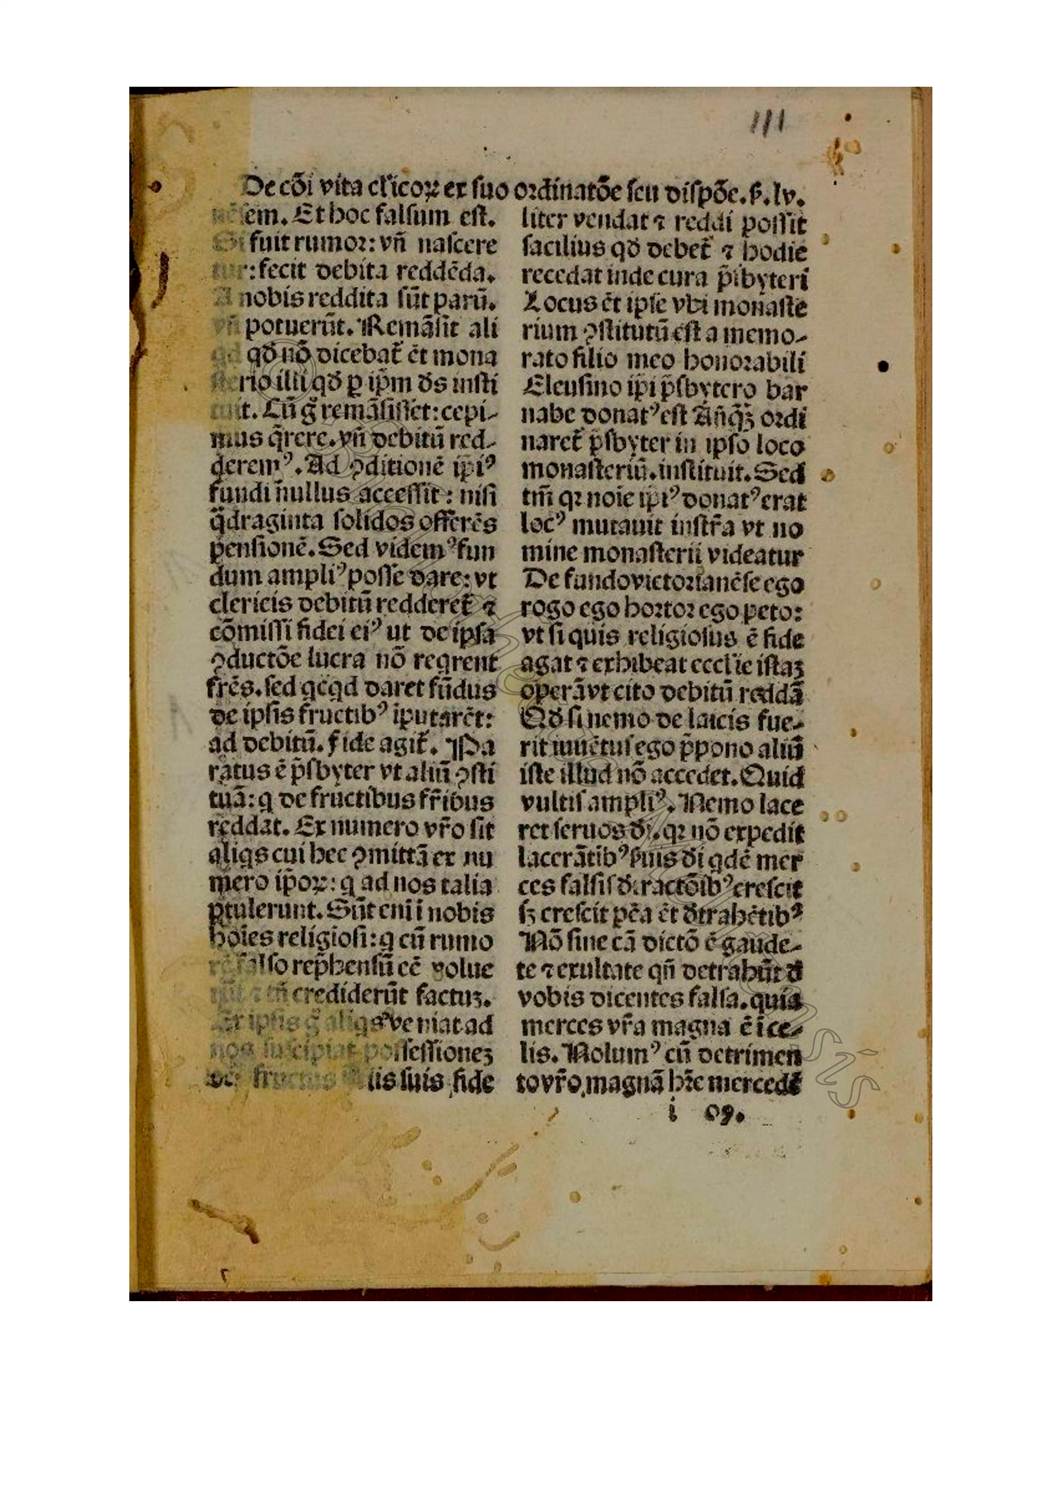 111
De cōi vita cl'icoꝝ ex suo ordinatōe seu dispōe. ß. lv.
sem. Et hoc falsum est.
fuit rumor: vñ nascere
tur: fecit debita reddēda.
A nobis reddita sūt parū.
vñ potuerūt. Remāsit ali
qd qđ nō dicebat̄ ēt mona
sterio illi qđ ꝑ ip̄m ds insti
tuit. Cū g̊ remāsisset: cepi-
mus q̄rere. vñ debitū red-
deremꝰ. Ad ꝯditionē ip̄iꝰ
fundi nullus accessit: nisi
q̄draginta solidos offerēs
pensionē. Sed videmꝰ fun
dum ampliꝰ posse dare: vt
clericis debitū redderet̄ ⁊
cōmissi fidei eiꝰ ut de ipsa
ꝯductōe lucra nō reqrent
fr̄es. sed qcqd daret fūdus
de ipsis fructibꝰ īputarēt:
ad debitū. fide agit̄. Pa
ratus ē p̄sbyter vt aliū ꝯsti
tuā: q de fructibus fr̄ibus
reddat. Ex numero vr̄o sit
aliqs cui hec ꝯmittā ex nu
mero ip̄oꝝ: q ad nos talia
ꝑtulerunt. Sūt eni ī nobis
hoīes religiosi: q cū rumo
rē falso rep̄hensū eē volue
rūt ⁊ tñ crediderūt factuꝫ.
Ex ipsis g̊ aliqs veniat ad
nos suscipiat possessioneꝫ
fructus illis suis fide
liter vendat ⁊ reddi possit
facilius qđ debet̄ ⁊ hodie
recedat inde cura p̄sbyteri
Locus ēt ipse vbi monaste
rium ꝯstitutū est a memo-
rato filio meo honorabili
Eleusino ip̄i p̄sbytero bar
nabe donatꝰ est Añq̄ꝫ ordi
naret̄ p̄sbyter in ipso loco
monasteriū. instituit. Sed
tm̄ qꝛ noīe ip̄iꝰ donatꝰ erat
locꝰ mutauit instr̄a vt no
mine monasterii videatur
De fundo victorianēse ego
rogo ego hortor ego peto:
vt si quis religiosus ē fide
agat ⁊ exhibeat eccl'ie istaꝫ
operā vt cito debitū reddā
Qđ si nemo de laicis fue-
rit inuētus ego p̄pono aliū
iste illud nō accedet. Quid
vultis ampliꝰ. Nemo lace
ret seruos đi. qꝛ nō expedit
lacerātibꝰ ẜuis đi qdē mer
ces falsis đtractōibꝰ crescit
sꝫ crescit pēa ēt đtrahētibꝰ
Nō sine cā dictō ē gaude-
te ⁊ exultate qñ detrahūt đ
vobis dicentes falsa. quia
merces vr̄a magna ē ī ce-
lis. Nolumꝰ cū detrimen
to vr̄o, magnā hr̄e mercedē
i 09.